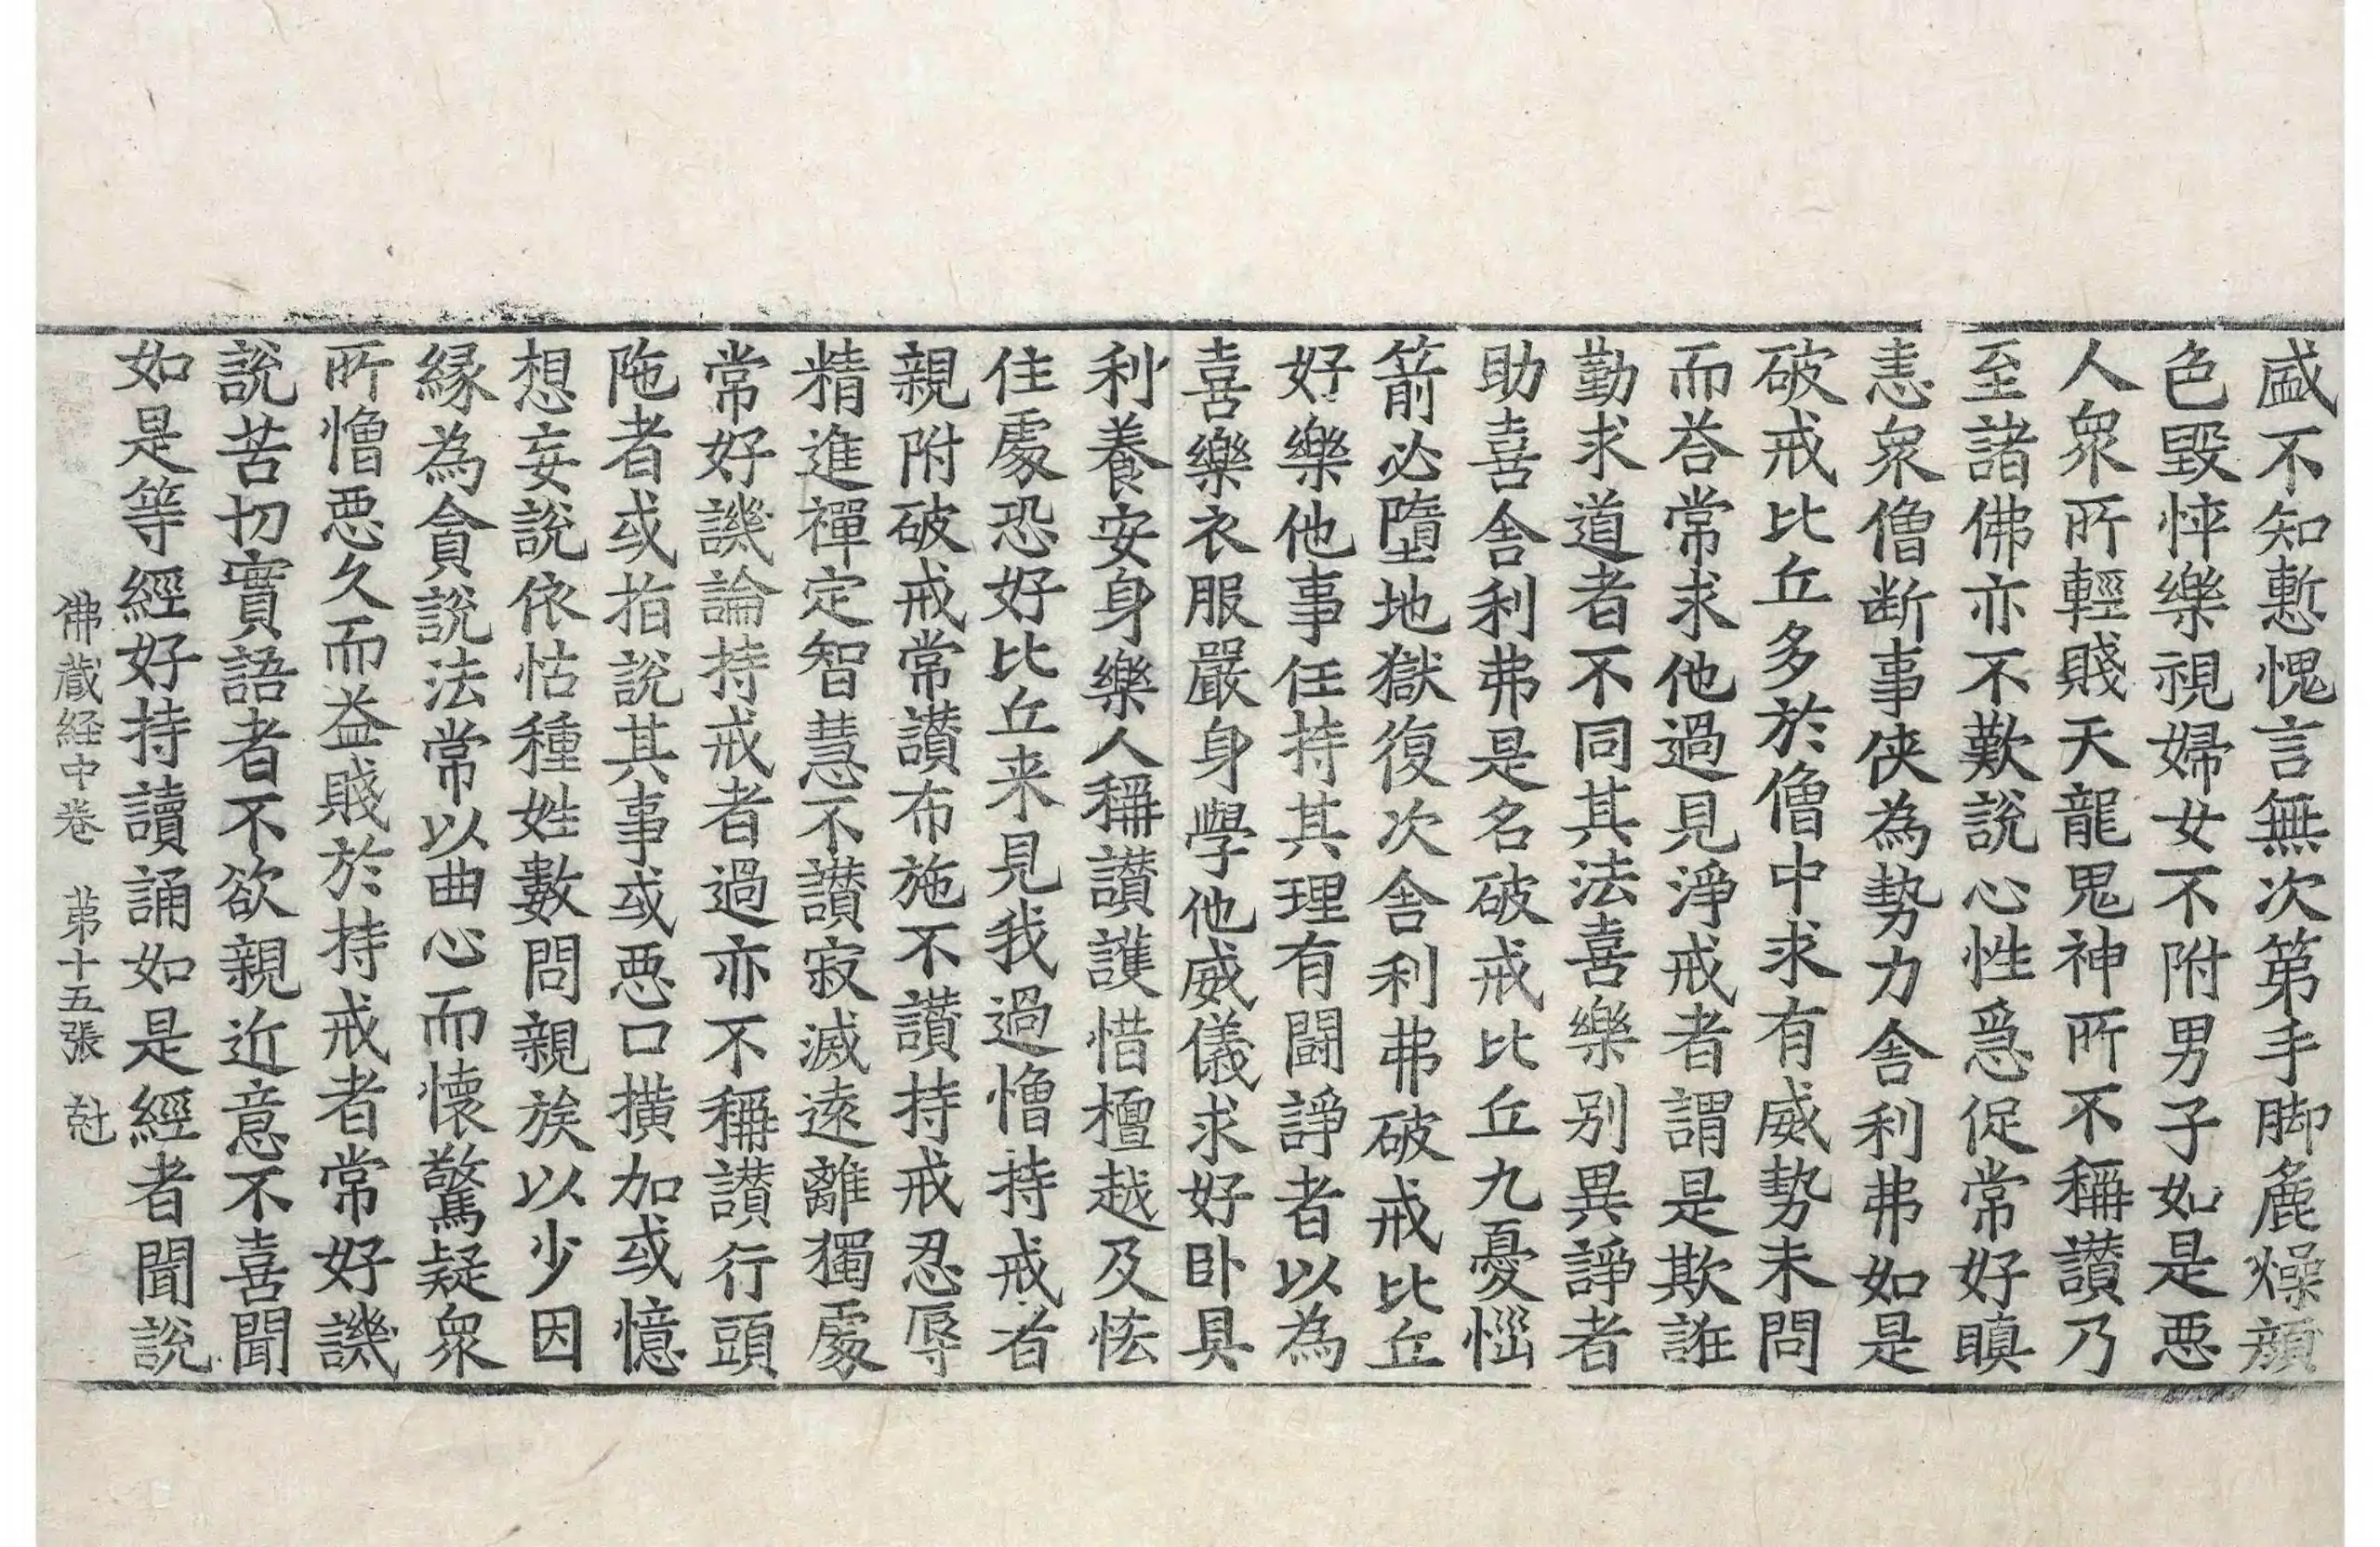 盛不知慙愧言無次第手脚麁燥顔
色毀悴樂視婦女不附男子如是惡
人衆所輕賤天龍鬼神所不稱讃乃
至諸佛亦不歎說心性急促常好瞋
恚衆僧断事俠為勢力舍利弗如是
破戒比丘多於僧中求有威勢未問
而荅常求他過見淨戒者謂是欺誑
勤求道者不同其法喜樂别異諍者
助喜舍利弗是名破戒比丘九憂惱
箭必墮地獄復次舍利弗破戒比丘
好樂他事任持其理有闘諍者以為
喜樂衣服嚴身學他威儀求好卧具
利養安身樂人稱讃護惜檀越及恡
住處恐好比丘来見我過憎持戒者
親附破戒常讃布施不讃持戒忍辱
精進禪定智慧不讃寂滅遠離獨處
常好譏論持戒者過亦不稱讃行頭
陁者或指說其事或惡口撗加或憶
想妄說依怙種姓數問親族以少因
縁為貪說法常以曲心而懐驚疑衆
所憎惡久而益賤於持戒者常好譏
說苦切實語者不欲親近意不喜聞
如是等經好持讀誦如是經者聞說
佛蔵経中卷 苐十五張 尅